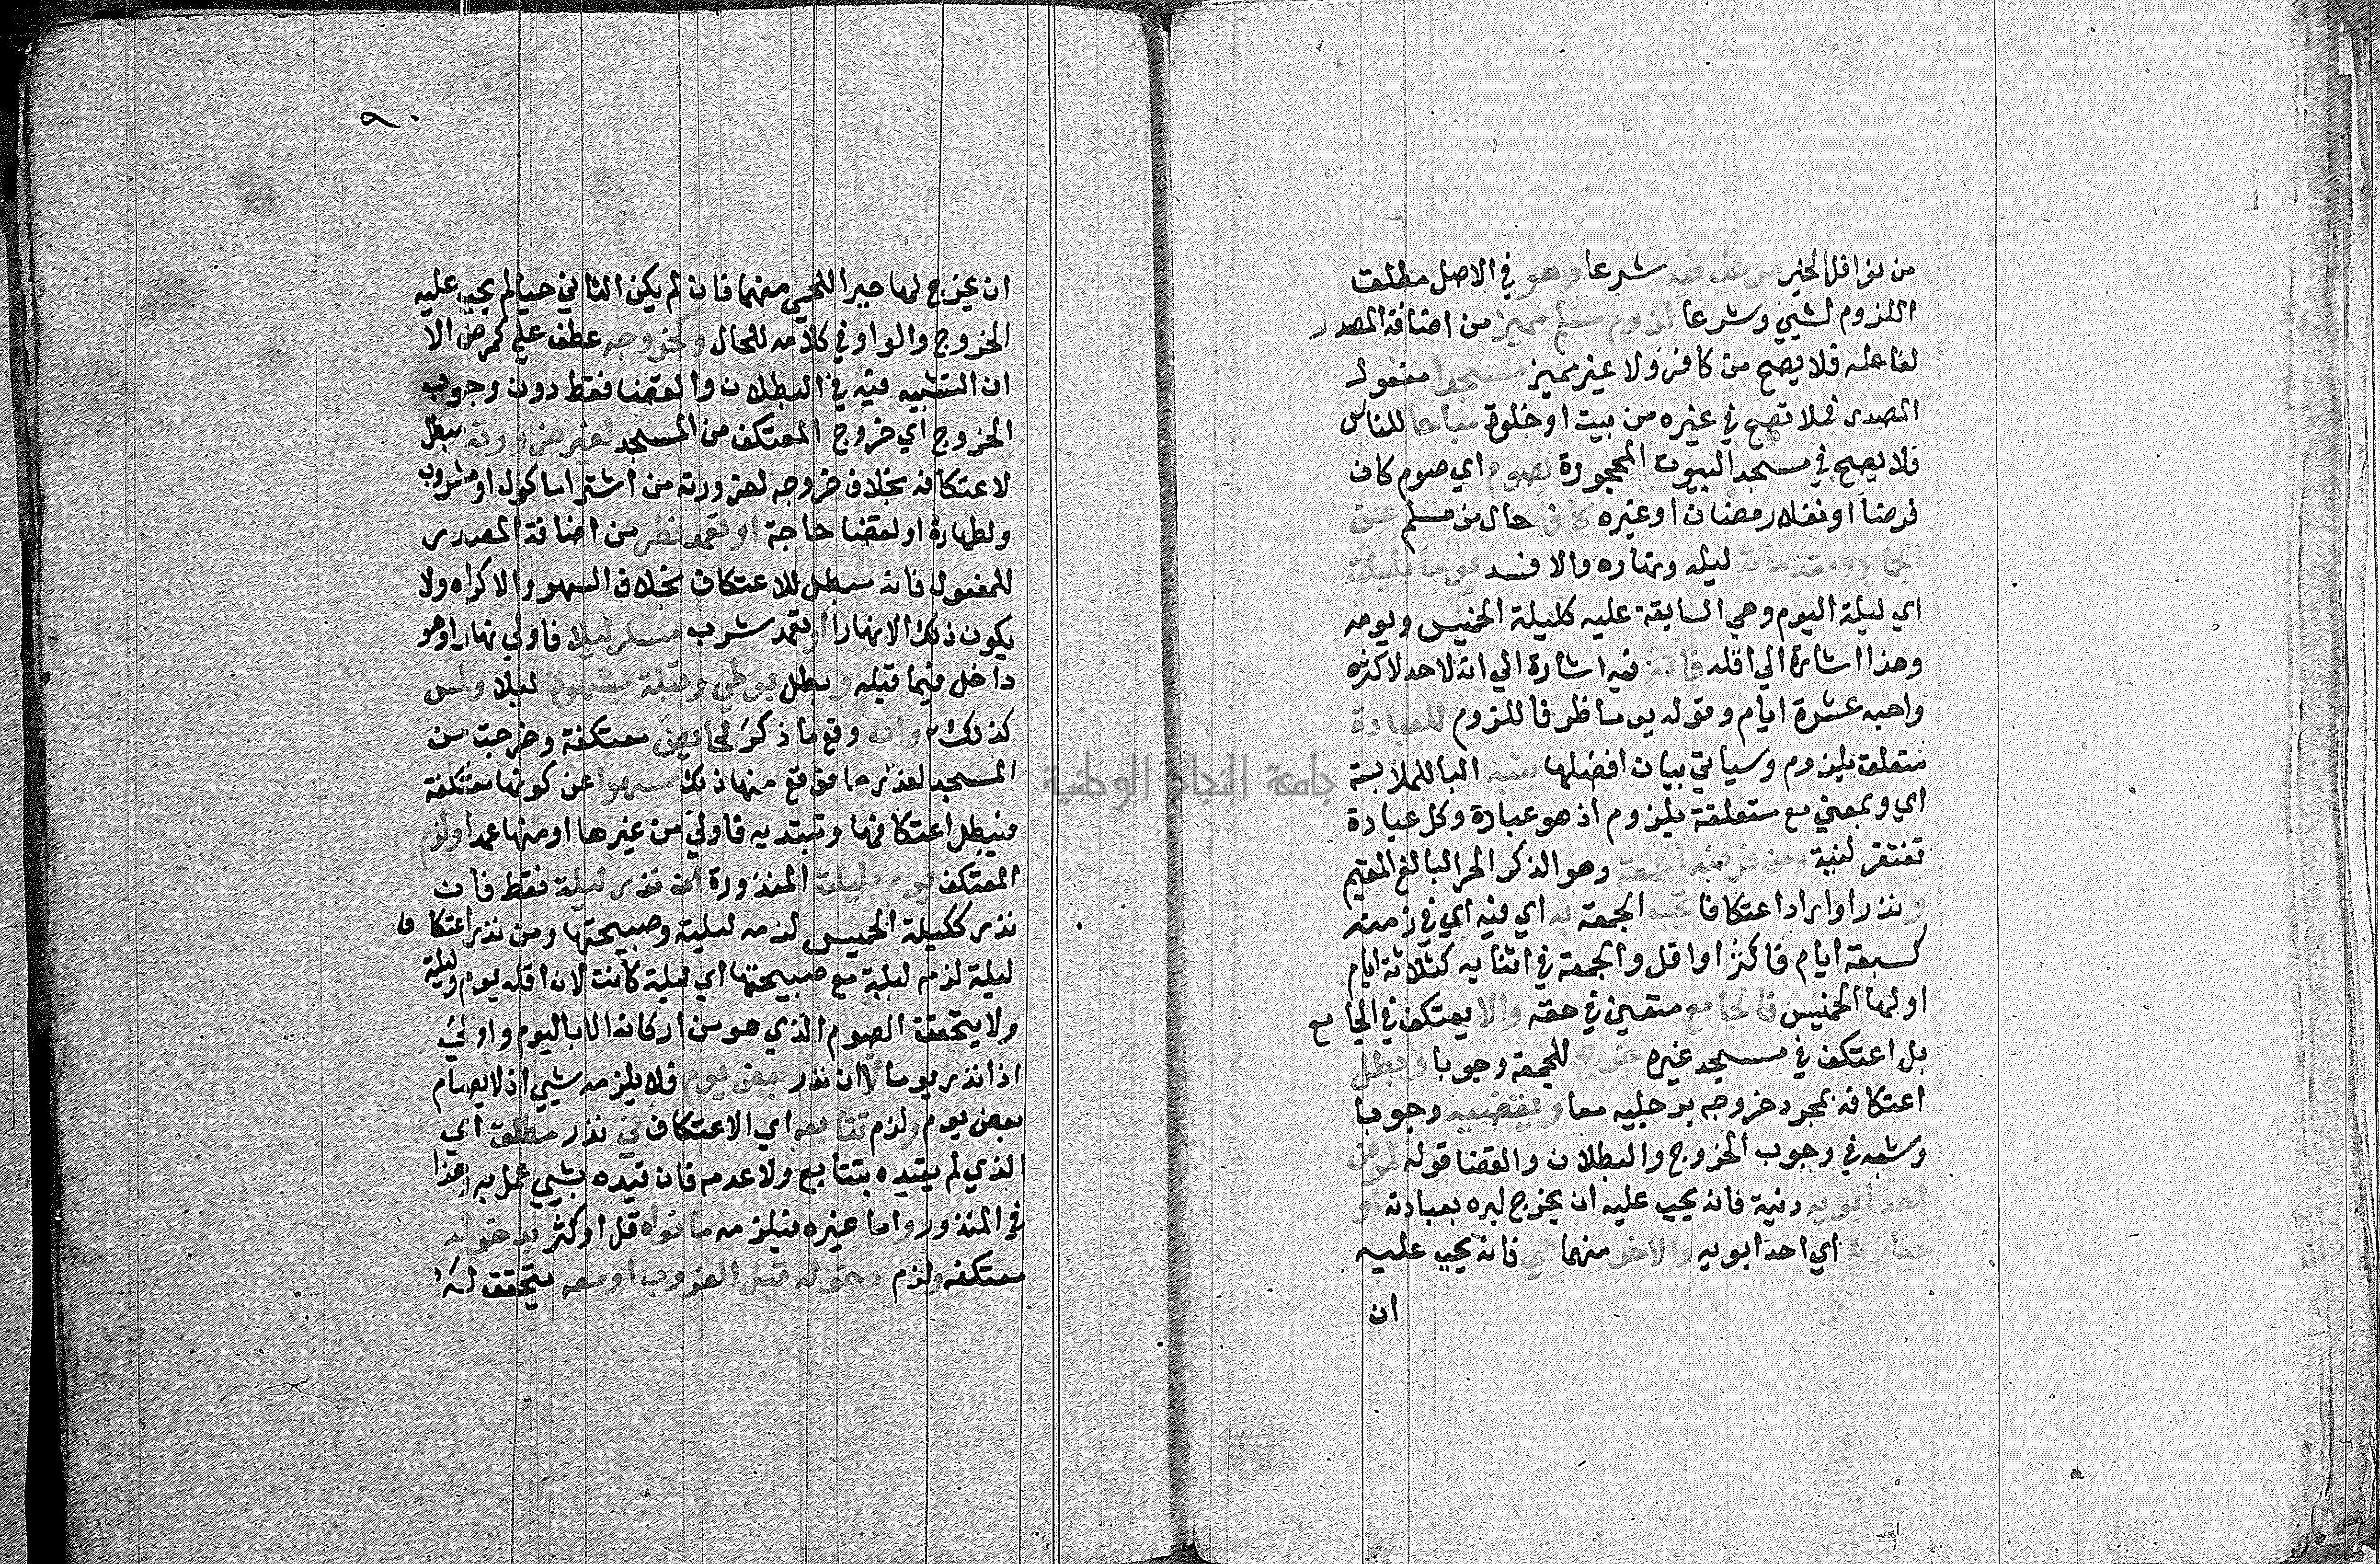 من نوافل الخير مرغب فيه شرعا وهو في الاصل مطلق
اللزوم لشيي وشرعا لزوم مسلم مميز من اضافة المصدر
لفاعله فلا يصح من كافر ولا غير مميز مسجدا مفعول
المصدر فلا تصح في غيره من بيت او خلوة مباحا للناس
فلا يصح في مسجد البيوت المحجورة بصوم اي صوم كان
فرضا او نفلا رمضان او غيره كافا حال من مسلم عن
الجماع ومقدماته ليله ونهاره والا فسد يوما بليلة
اي ليلة اليوم وهي السابقة عليه كليلة الخميس ويومه
وهذا اشارة الي اقله فاكثر فيه اشارة الي انه لاحد لاكثره
واحبه عشرة ايام وقوله يوما ظرف فاللزوم للعبادة
متعلق بلزوم وسياتي بيان افضلها بنية البا للملابسة
اي وبمعني مع متعلقة بلزوم اذ هو عبادة وكل عبادة
تفتقر لنية ومن فرضه الجمعة وهو الذكر الحر البالغ المقيم
ونذر او اراد اعتكافا تجب الجمعة به اي فيه اي في زمنه
كسبعة ايام فاكثر او اقل والجمعة في اثنايه كثلاثة ايام
اولها الخميس فالجامع متعين في حقه والا يعتكف في الجامع
بل اعتكف في مسجد غيره خرج للجمعة وجوبا وبطل
اعتكافه بمجرد خروجه برجليه معا ويقضيه وجوبا
وشبه في وجوب الخروج والبطلان والقضا قوله كمرض
احد ابويه دنية فانه يجب عليه ان يخرج لبره بعيادته او
جنازته اي احد ابويه والاخر منهما حي فانه يجب عليه
ان
٩٠
ان يخرج لها جبرا للحي منهما فان لم يكن الثاني حيا لم يجب عليه
الخروج والواو في كلامه للحال وكخروجه عطف علي كمرض الا
ان التشبيه فيه في البطلان والقضا فقط دون وجوب
الخروج اي خروج المعتكف من المسجد لغير ضرورته مبطل
لاعتكافه بخلاف خروجه لضرورته من اشترا ماكول او مشروب
ولطهارة او لقضا حاجة او تعمد فطر من اضافة المصدر
للمفعول فانه مبطل للاعتكاف بخلاف السهو والاكراه ولا
يكون ذلك الا نهارا او تعمد شرب مسكر ليلا فاولي نهارا وهو
داخل فيما قبله وبطل بوطي وقبلة بشهوة ليلا ولمس
كذلك وان وقع ما ذكر لحايض معتكفة وخرجت من
المسجد لعذرها فوقع منها ذلك سهوا عن كونها معتكفة
فيبطل اعتكافها وتبتديه فاولي من غيرها او منها عمدا ولزم
المعتكف يوم بليلته المنذورة ان نذر ليلة فقط فان
نذر كليلة الخميس لزمه ليلته وصبيحتها ومن نذر اعتكاف
ليلة لزمه ليلة مع صبيحتها اي ليلة كانت لان اقله يوم وليلة
ولا يتحقق الصوم الذي هو من اركانه الا باليوم واولي
اذا نذر يوما لا ان نذر بعض يوم فلا يلزمه شيي اذ لا يصام
بعض يوم ولزم تتابعه اي الاعتكاف في نذر مطلق اي
الذي لم يقيده بتتابع ولا عدمه فان قيده بشيي عمل به وهذا
في المنذور واما غيره فيلزمه ما نواه قل او كثر بدخوله
معتكفه ولزم دخوله قبل الغروب او معه ليتحقق له
جامعة النجاح الوطنية